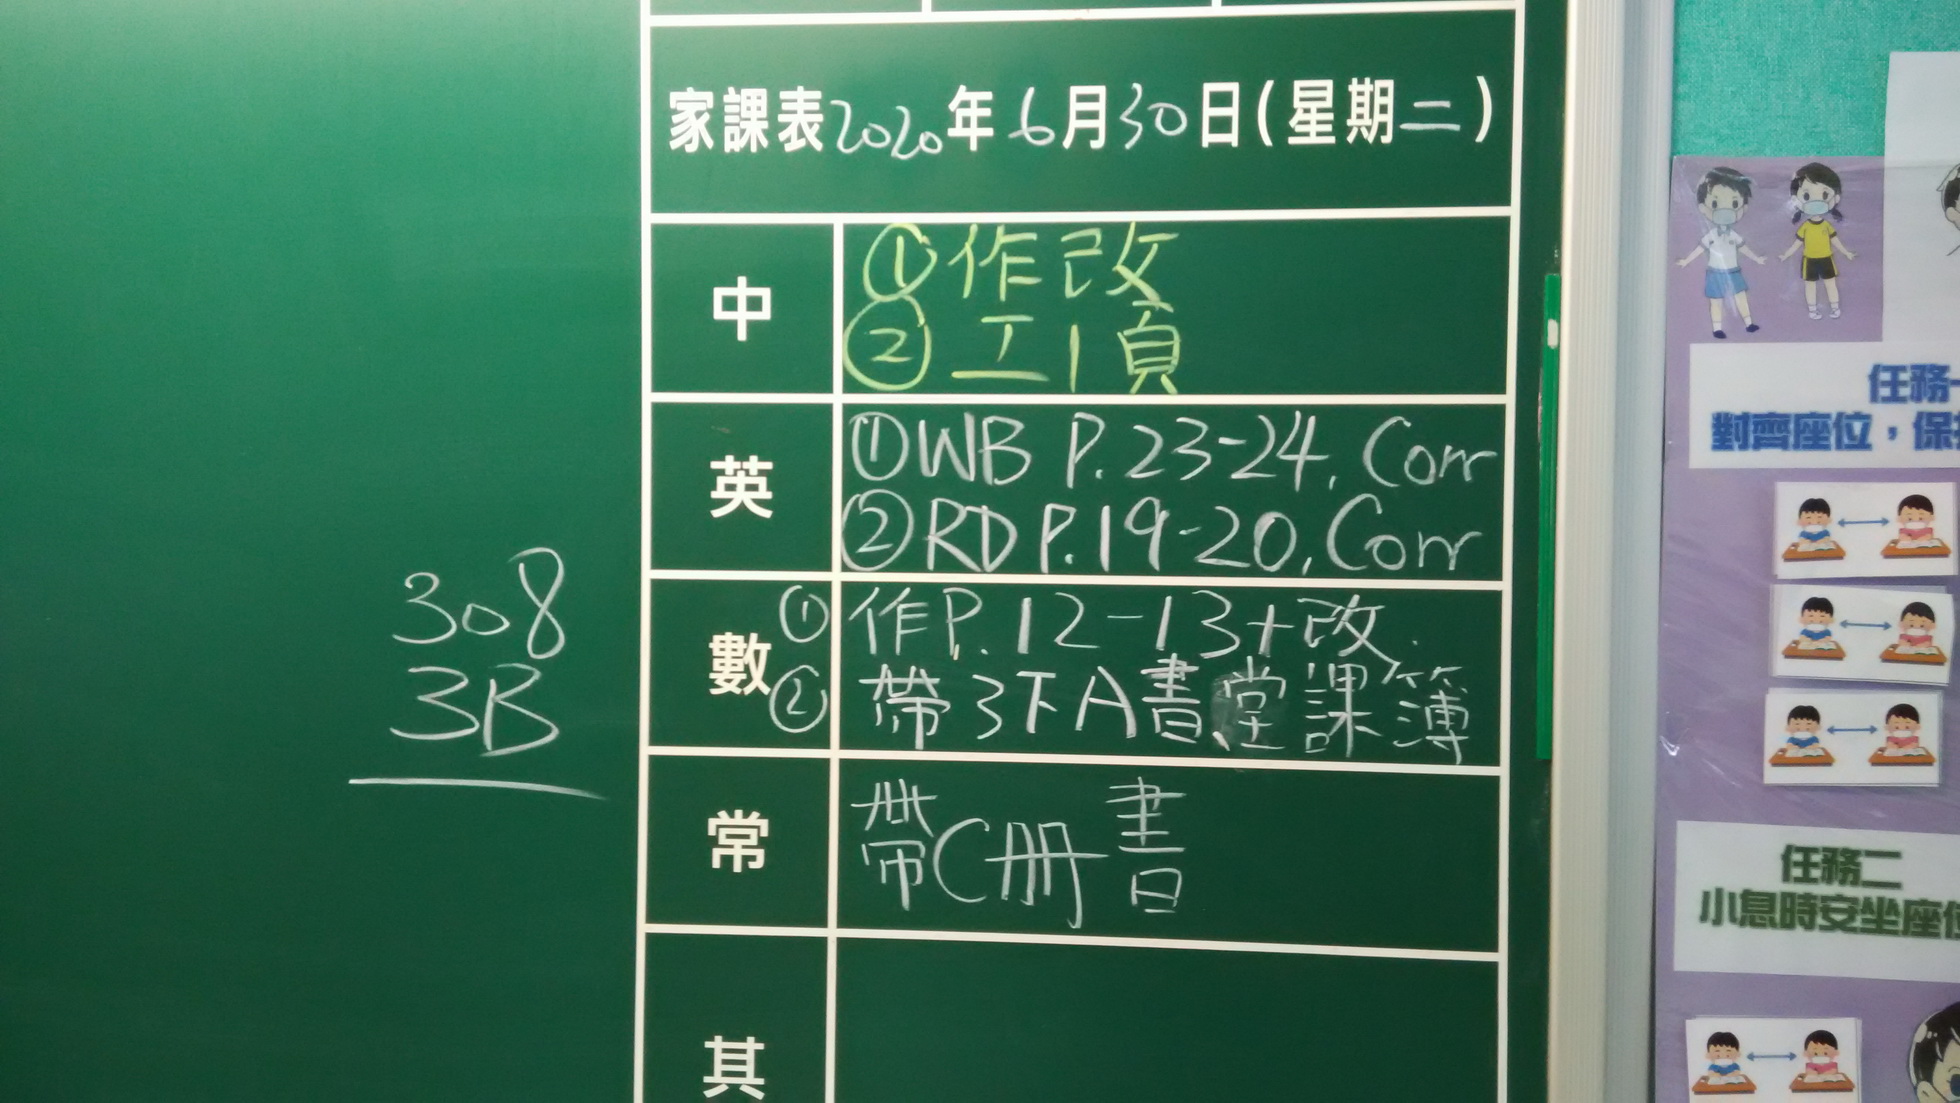 家課表2020年6月30日(星期二)
中
①作改
②工1頁
英
①WB P.23-24, Corr
②RD P.19-20, Corr
數
①作P.12-13+改
②帶3下A書堂課簿
常
帶C冊書
其
308
3B
任務一
對齊座位,保持
任務二
小息時安坐座位